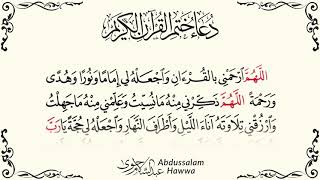 دُعَاءُ خَتْمِ الْقُرْآنِ الْكَرِيمِ
اللَّهُمَّ ارْحَمْنِي بِالْقُرْءَانِ وَاجْعَلْهُ لِي إِمَامًا وَنُورًا وَهُدًى
وَرَحْمَةً اللَّهُمَّ ذَكِّرْنِي مِنْهُ مَا نَسِيتُ وَعَلِّمْنِي مِنْهُ مَا جَهِلْتُ
وَارْزُقْنِي تِلَاوَتَهُ آنَاءَ اللَّيْلِ وَأَطْرَافَ النَّهَارِ وَاجْعَلْهُ لِي حُجَّةً يَا رَبَّ
Abdussalam
Hawwa